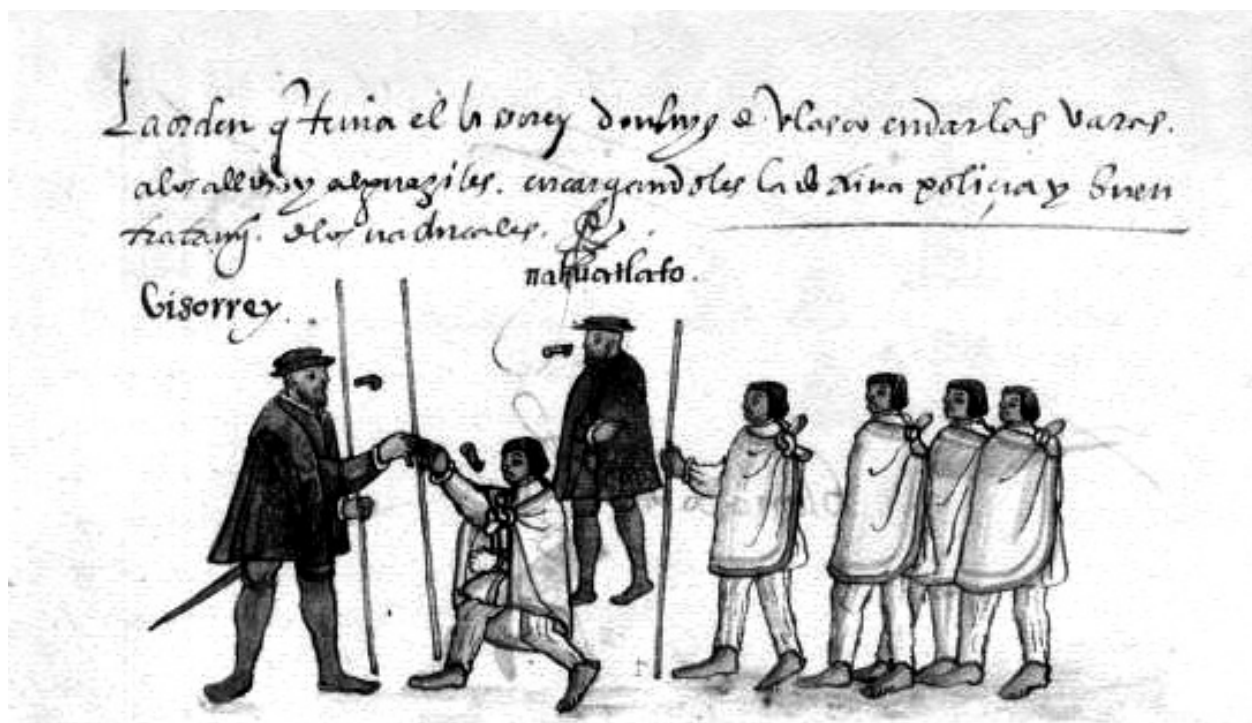 La orden q tenia el bisorey don luys de Velasco en dar las varas.
a los allds y alguaziles. encargandoles la doctrina poliçia y buen
tratamyº. de los naturales.
nahuatlato.
Visorrey.